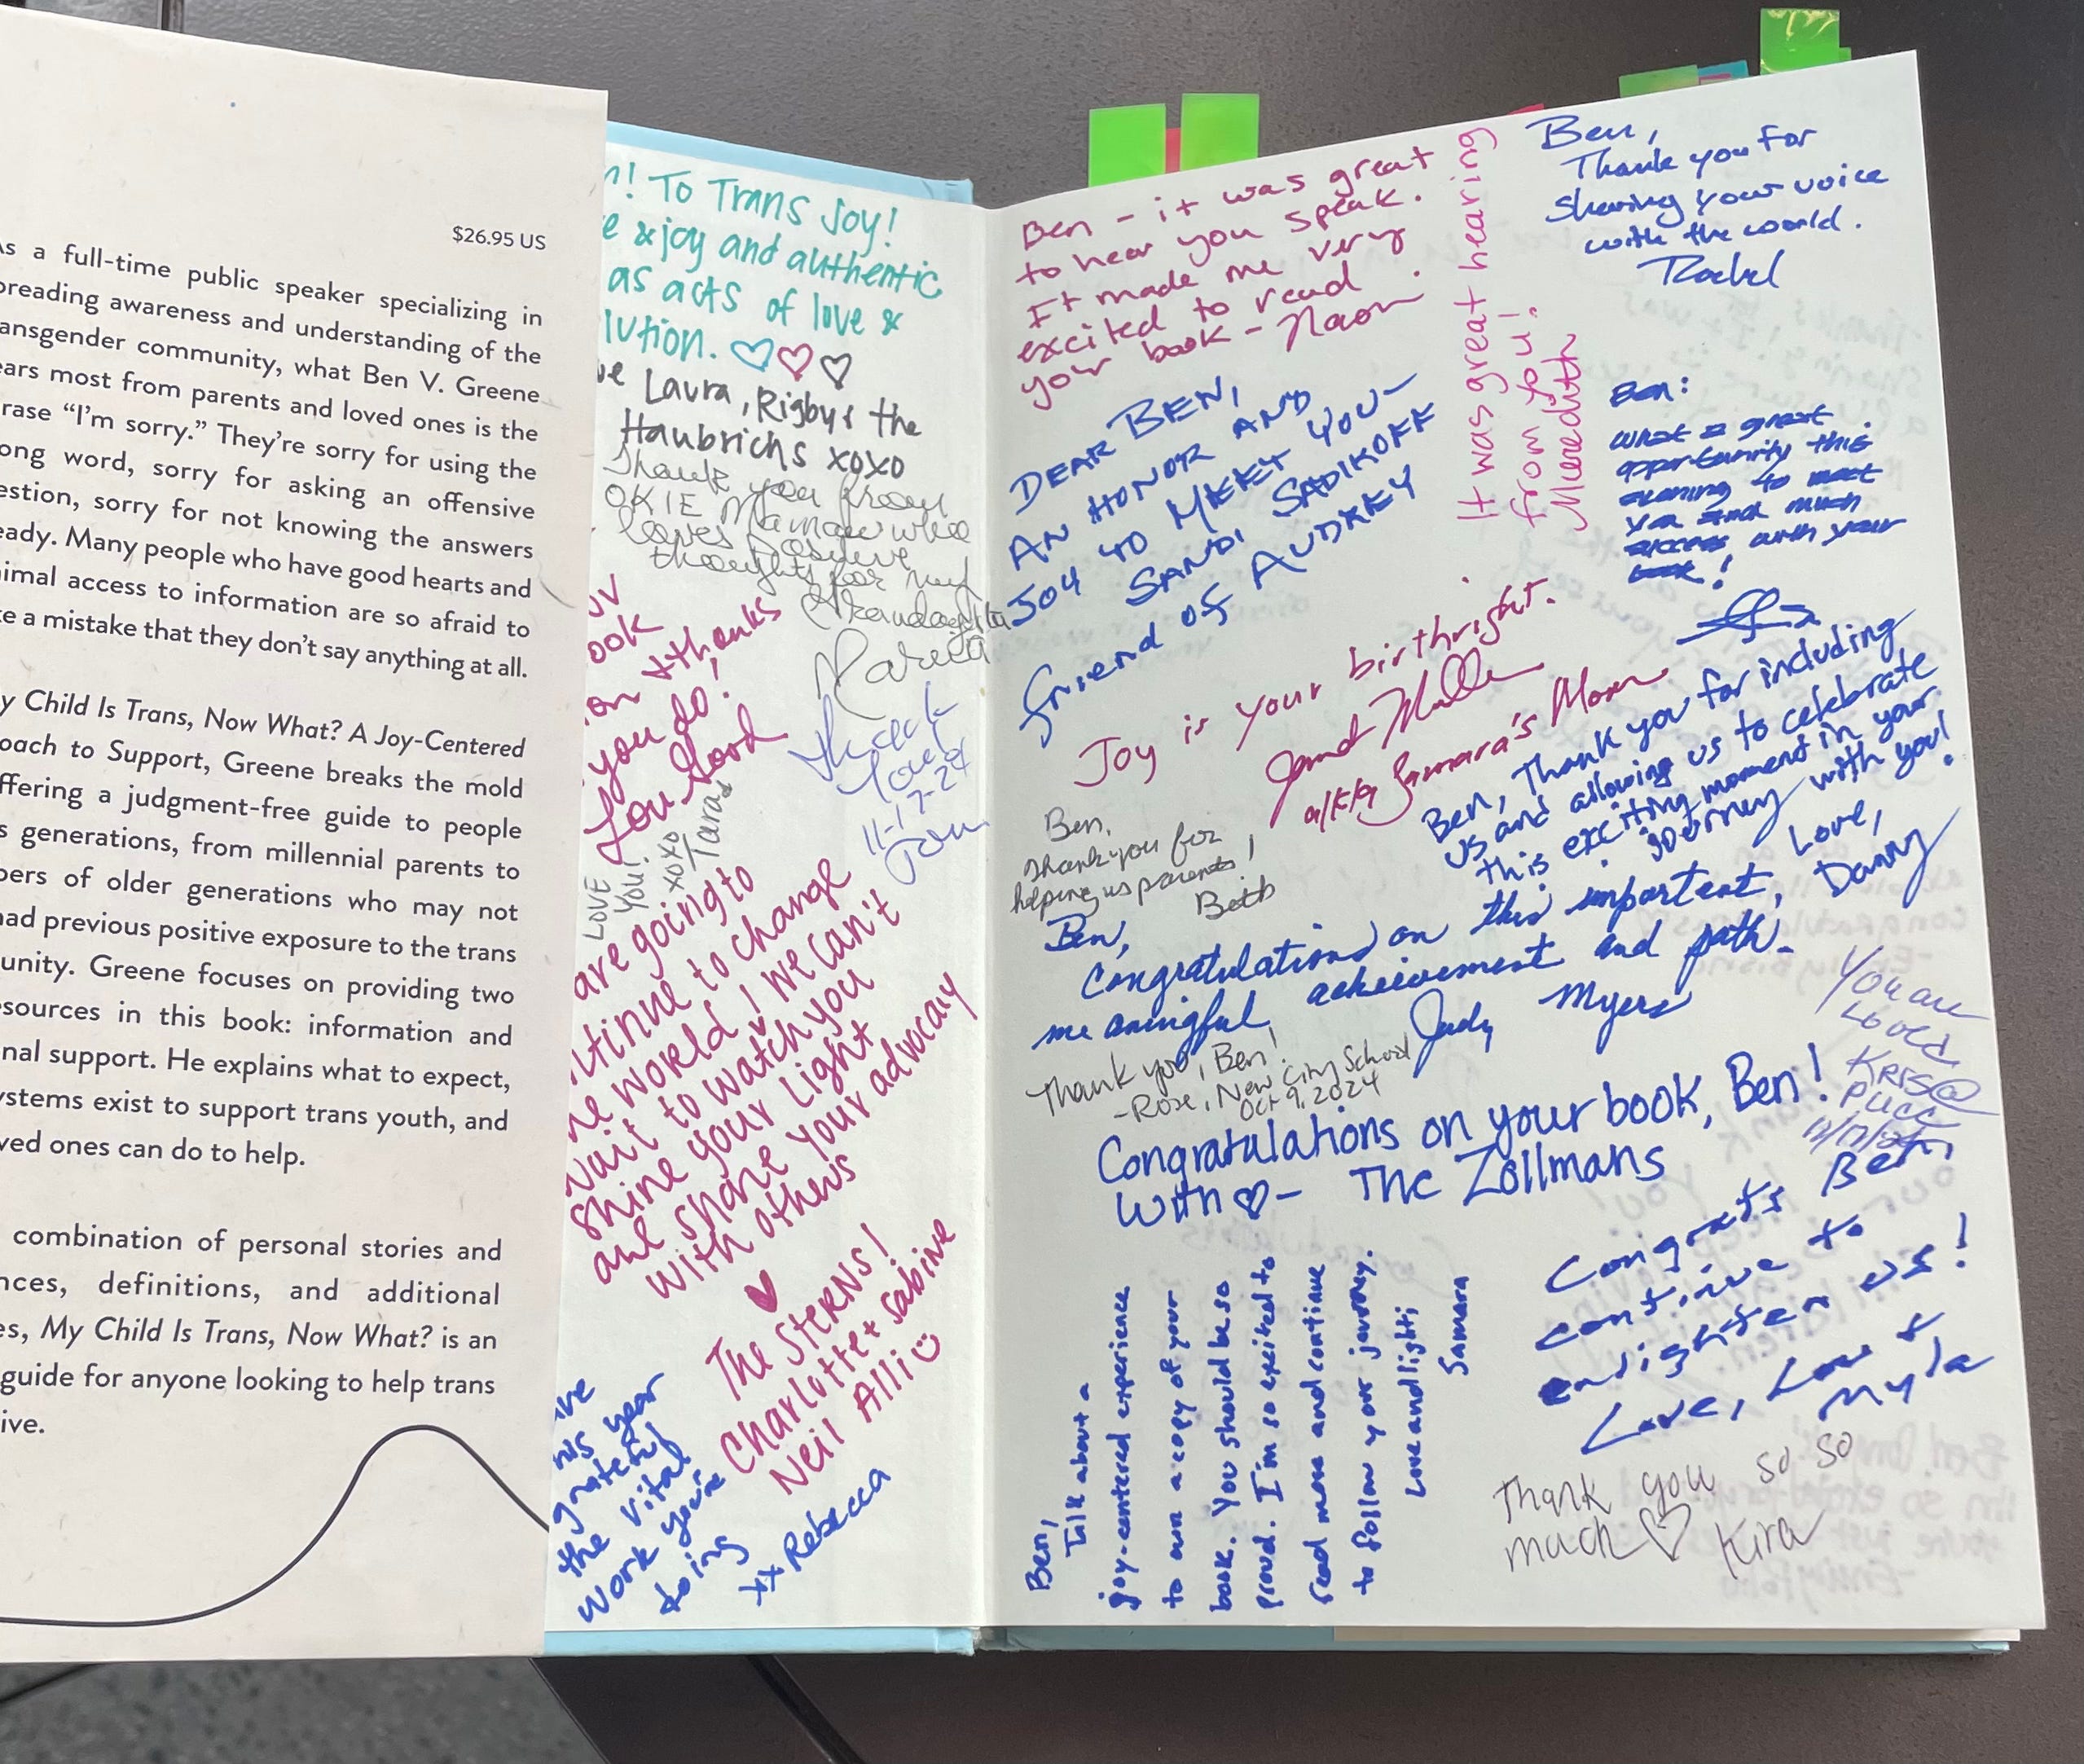 $26.95 US
As a full-time public speaker specializing in
preading awareness and understanding of the
ansgender community, what Ben V. Greene
ears most from parents and loved ones is the
rase “I’m sorry.” They’re sorry for using the
ong word, sorry for asking an offensive
estion, sorry for not knowing the answers
eady. Many people who have good hearts and
imal access to information are so afraid to
e a mistake that they don’t say anything at all.
y Child Is Trans, Now What? A Joy-Centered
oach to Support, Greene breaks the mold
ffering a judgment-free guide to people
s generations, from millennial parents to
bers of older generations who may not
had previous positive exposure to the trans
unity. Greene focuses on providing two
sources in this book: information and
nal support. He explains what to expect,
ystems exist to support trans youth, and
ved ones can do to help.
combination of personal stories and
nces, definitions, and additional
es, My Child Is Trans, Now What? is an
guide for anyone looking to help trans
ive.
n! To Trans Joy!
e & joy and authentic
as acts of love &
lution.
ve Laura, Rigby & the
Haubrichs xoxo
Thank you from
OKIE Mamaw who
loves positive
thoughts for my
Grandaughter
ook
on & thanks
you do!
Lou Good
LOVE
YOU!
xoxo
Tara
Thank
You
11-17-24
are going to
ntinue to change
he world! We can't
wait to watch you
shine your light
and share your advocacy
with others
The Sterns!
Charlotte + Sabine
Neil Alli
ive
his year
grateful
the vital
work you're
doing
xx Rebecca
Ben - it was great
to hear you speak.
It made me very
excited to read
your book - Naomi
It was great hearing
from you!
Meredith
Ben,
Thank you for
sharing your voice
with the world.
Rachel
DEAR BEN,
AN HONOR AND
JOY TO MEET YOU-
SANDI SADIKOFF
friend of AUDREY
Ben:
what a great
opportunity this
evening to meet
you and much
success with your
book!
Joy is your birthright.
Janet
a/k/a Samara's Mom
Ben, Thank you for including
us and allowing us to celebrate
this exciting moment in your
journey with you!
Love,
Danny
Ben,
Thank you for
helping us parents!
Beth
Ben,
Congratulations on this important,
meaningful achievement and path.
Judy Myers
Thank you, Ben!
-Rose, New City School
Oct 9, 2024
You are
loved
KRIS@
PUCC
Congratulations on your book, Ben!
With ♡- The Zollmans
Congrats Ben,
continue to
enlighten us!
Love, Lou &
Myla
Ben,
Talk about a
joy-centered experience
to own a copy of your
book. You should be so
proud. I'm so excited to
read more and continue
to follow your journey.
Love and light,
Samara
Thank you so so
much ♡ Kira